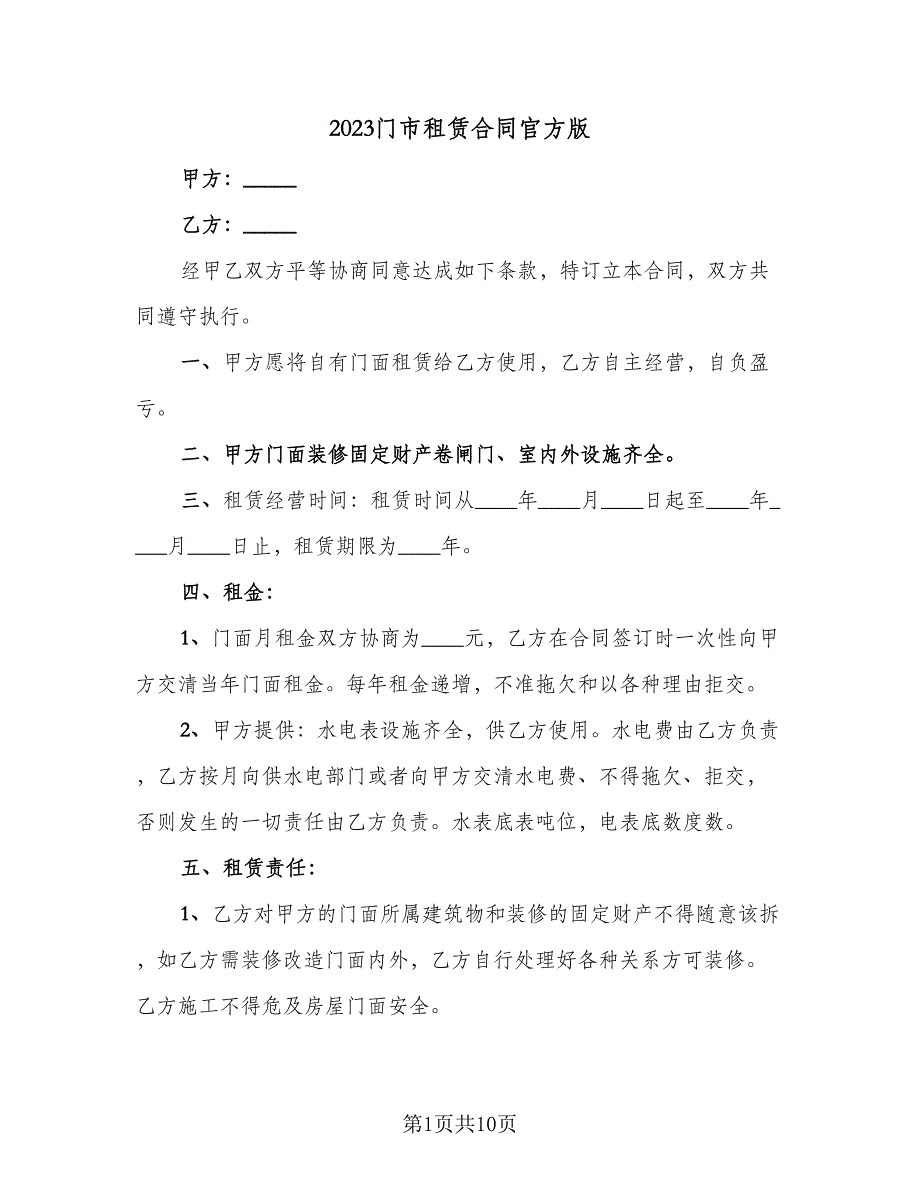 2023门市租赁合同官方版
甲方：_____
乙方：_____
经甲乙双方平等协商同意达成如下条款，特订立本合同，双方共
同遵守执行。
一、甲方愿将自有门面租赁给乙方使用，乙方自主经营，自负盈
亏。
二、甲方门面装修固定财产卷闸门、室内外设施齐全。
三、租赁经营时间：租赁时间从____年____月____日起至____年_
___月____日止，租赁期限为____年。
四、租金：
1、门面月租金双方协商为____元，乙方在合同签订时一次性向甲
方交清当年门面租金。每年租金递增，不准拖欠和以各种理由拒交。
2、甲方提供：水电表设施齐全，供乙方使用。水电费由乙方负责
，乙方按月向供水电部门或者向甲方交清水电费、不得拖欠、拒交，
否则发生的一切责任由乙方负责。水表底表吨位，电表底数度数。
五、租赁责任：
1、乙方对甲方的门面所属建筑物和装修的固定财产不得随意该拆
，如乙方需装修改造门面内外，乙方自行处理好各种关系方可装修。
乙方施工不得危及房屋门面安全。
第1页共10页